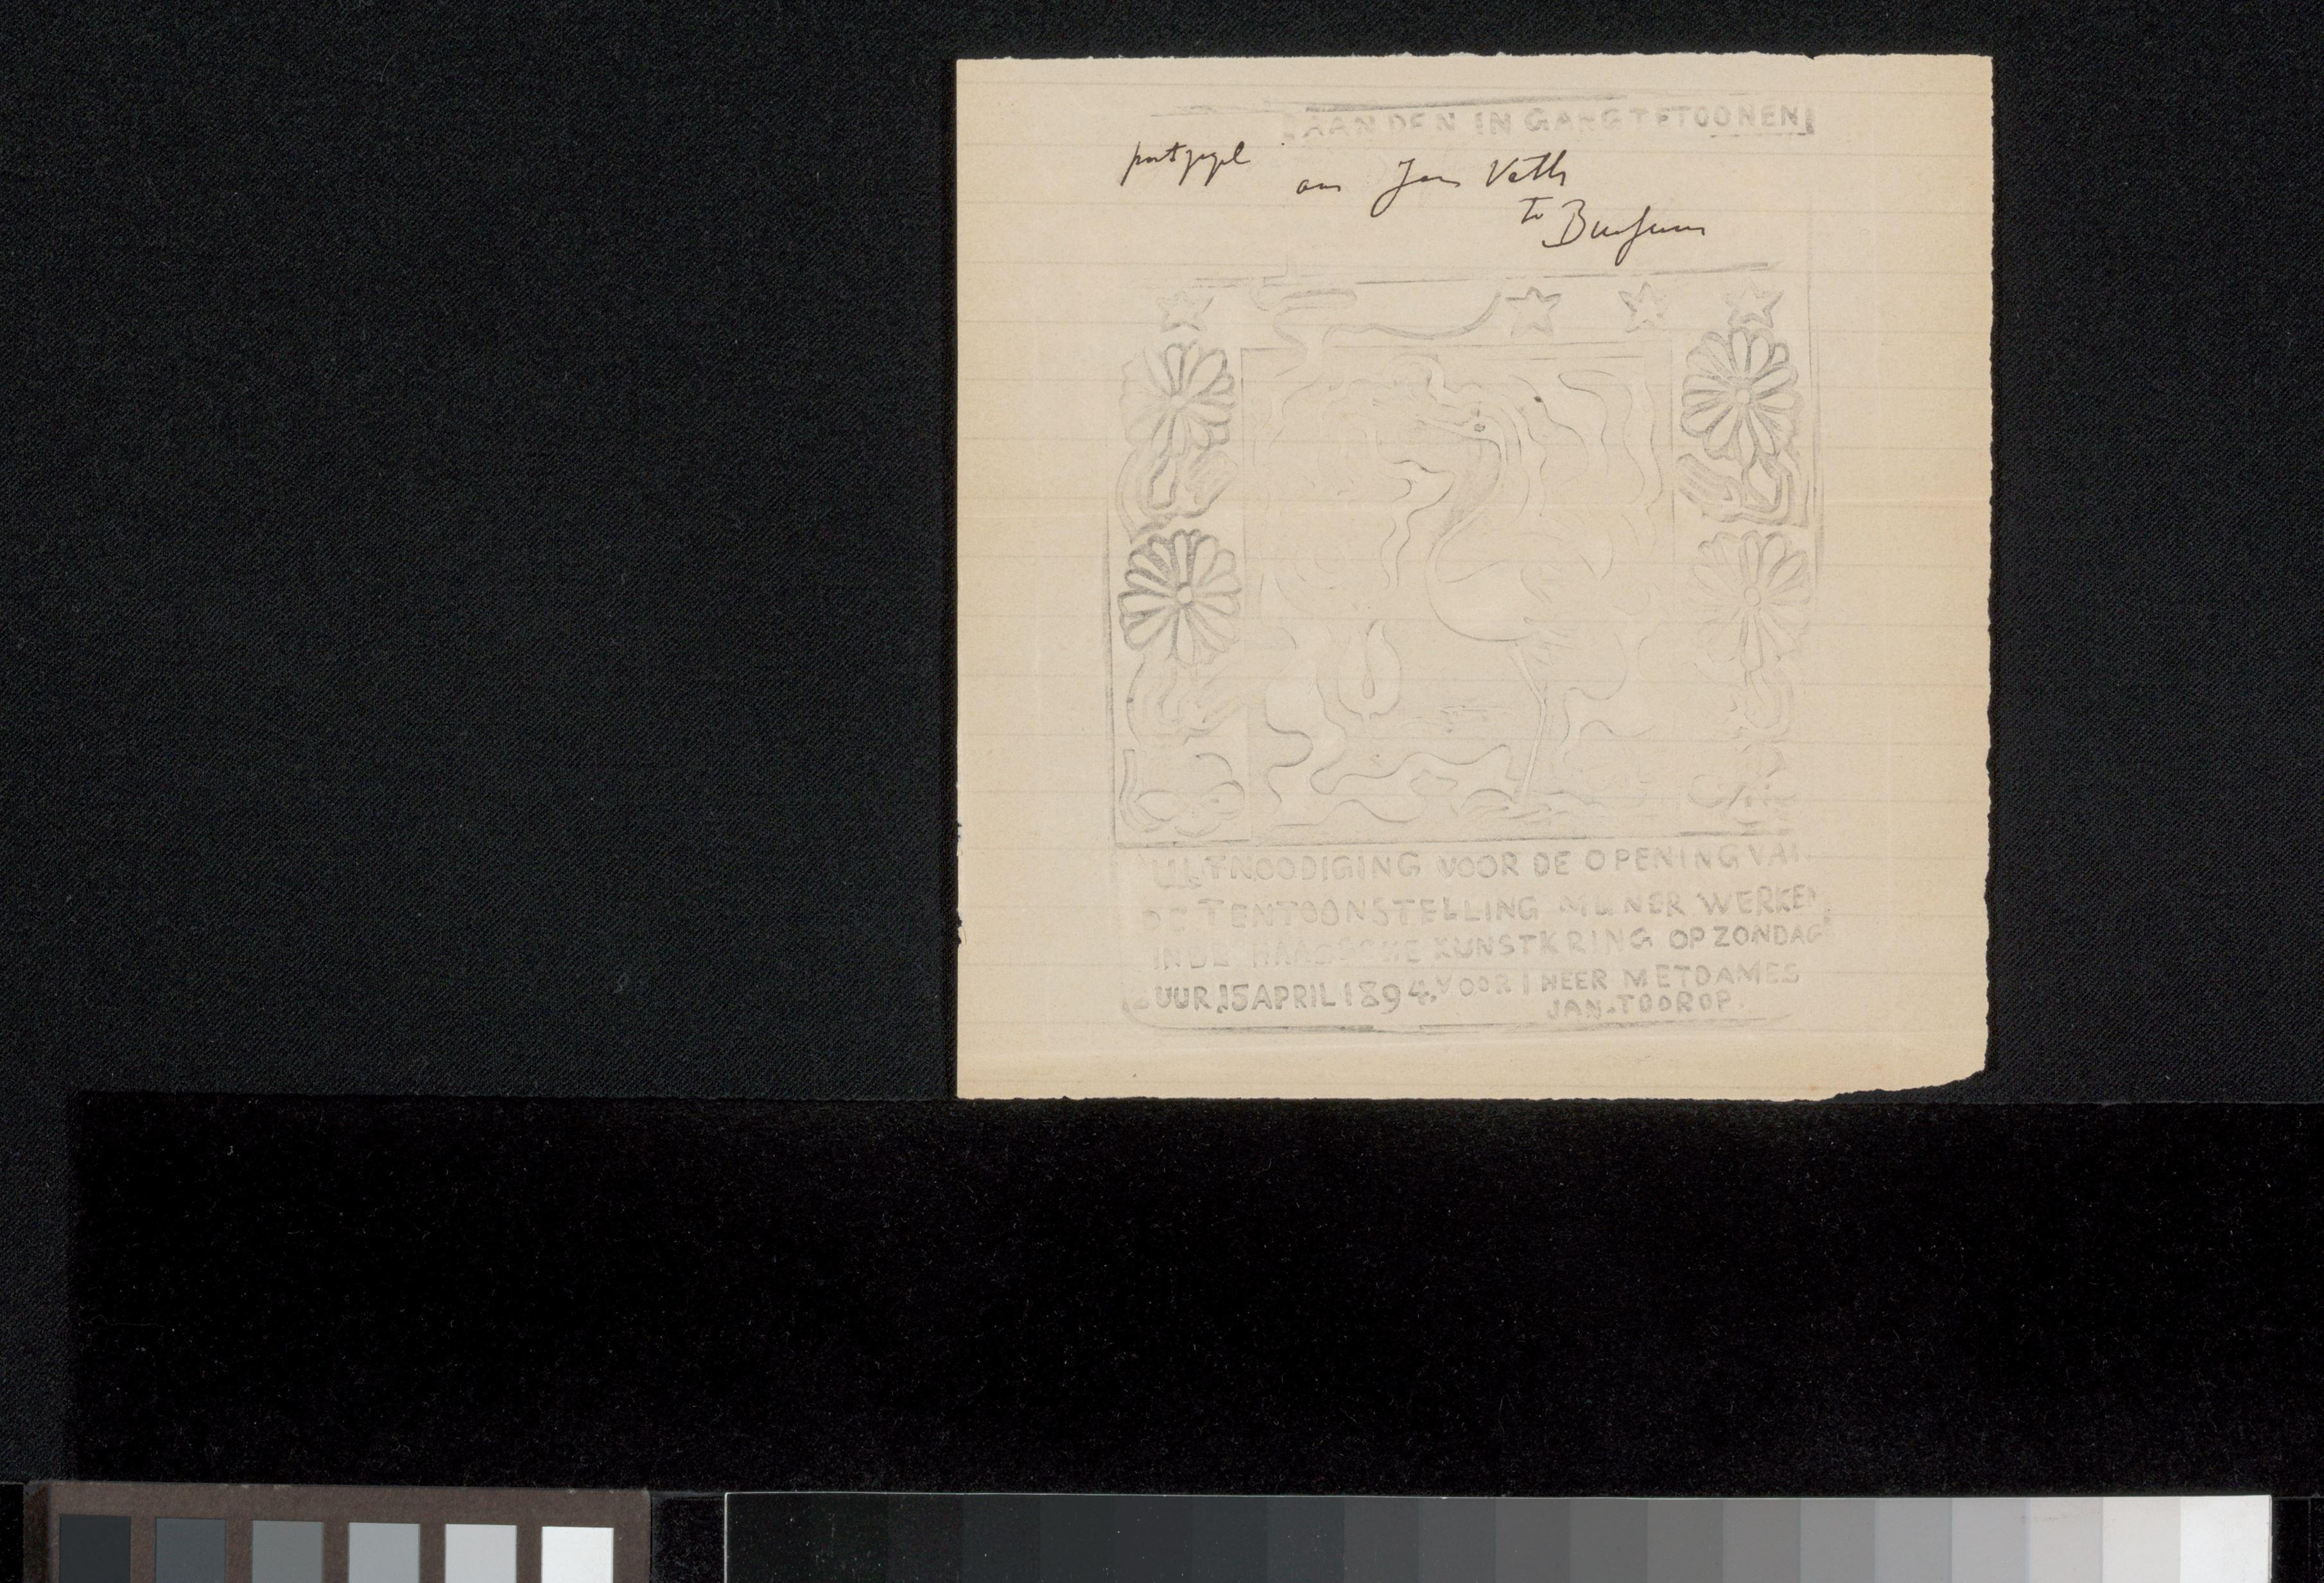 AAN DEN INGANG TE TOONEN
postzegel
aan Jan Veth
te Bussum
UITNOODIGING VOOR DE OPENING VAN
DE TENTOONSTELLING MIJNER WERKEN
IN DE HAAGSCHE KUNSTKRING OP ZONDAG
2 UUR 15 APRIL 1894. VOOR 1 HEER MET DAMES
JAN-TOOROP.